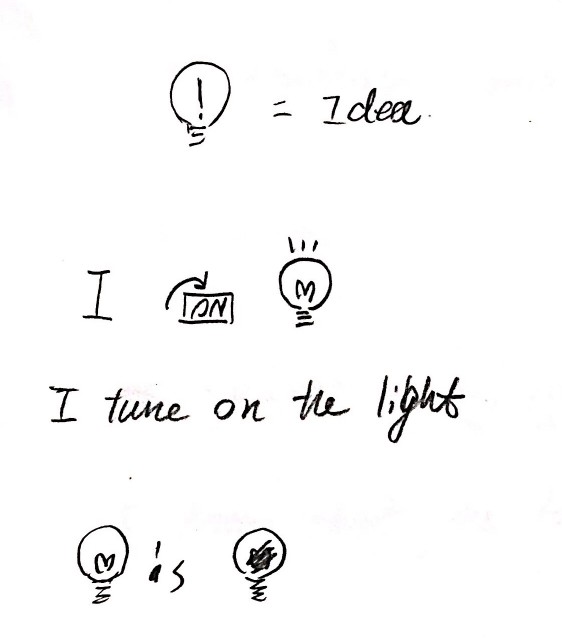 ! = Idea.
I ON
I tune on the light
is